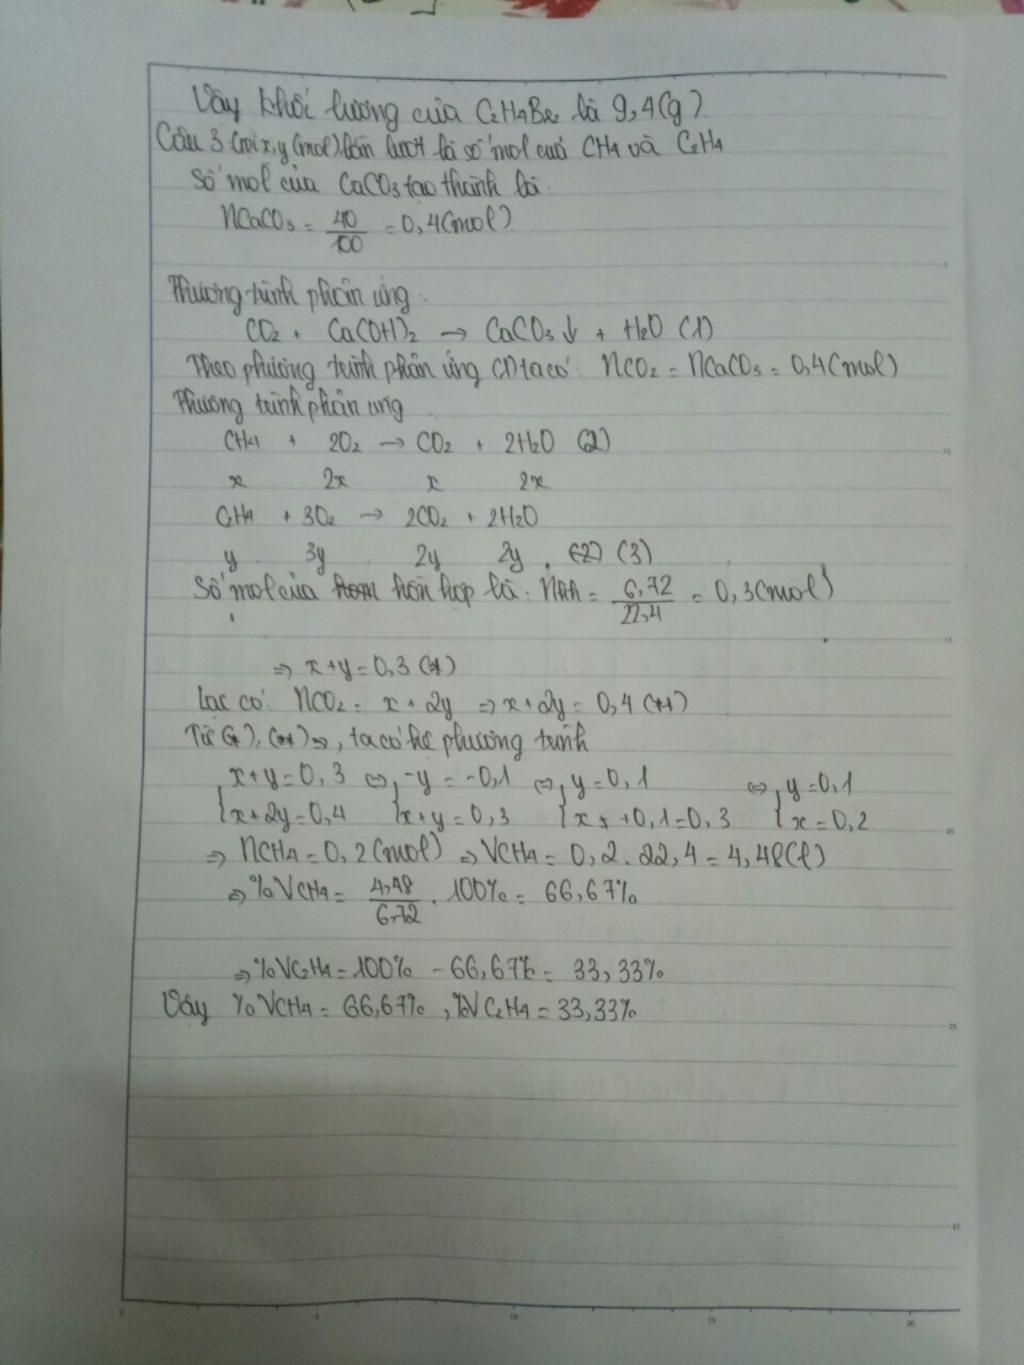 Vậy khối lượng của C₂H₄Br₂ là 9,4(g).
Câu 3: Gọi x, y (mol) lần lượt là số mol của CH₄ và C₂H₄
Số mol của CaCO₃ tạo thành là:
nCaCO₃ = 40/100 = 0,4(mol)
Phương trình phản ứng:
CO₂ + Ca(OH)₂ → CaCO₃↓ + H₂O (1)
Theo phương trình phản ứng (1) ta có: nCO₂ = nCaCO₃ = 0,4(mol)
Phương trình phản ứng
CH₄ + 2O₂ → CO₂ + 2H₂O (2)
x 2x x 2x
C₂H₄ + 3O₂ → 2CO₂ + 2H₂O
y 3y 2y 2y (3)
Số mol của hỗn hợp là: nhh = 6,72/22,4 = 0,3(mol)
⇒ x+y = 0,3 (*)
Lại có: nCO₂ = x + 2y ⇒ x + 2y = 0,4 (**)
Từ (*), (**) ⇒, ta có hệ phương trình
{x+y=0,3 ⇔ {-y = -0,1 ⇔ {y = 0,1 ⇔ {y = 0,1
{x+2y=0,4 {x+y = 0,3 {x + 0,1 = 0,3 {x = 0,2
⇒ nCH₄ = 0,2(mol) ⇒ VCH₄ = 0,2 . 22,4 = 4,48(l)
⇒ %VCH₄ = 4,48/6,72 . 100% = 66,67%
⇒ %VC₂H₄ = 100% - 66,67% = 33,33%
Vậy %VCH₄ = 66,67%, %VC₂H₄ = 33,33%